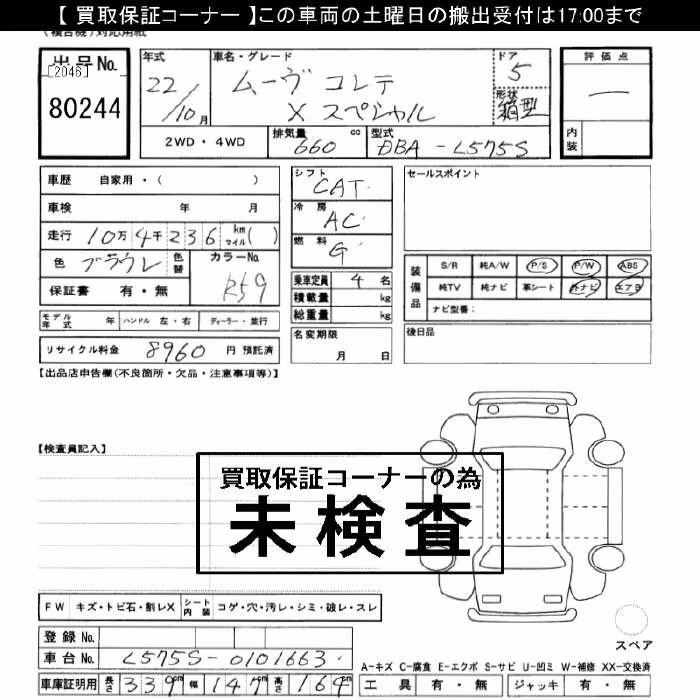 【 買取保証コーナー 】この車両の土曜日の搬出受付は17:00まで
出品No.
[2046]
80244
年式
22/10月
車名・グレード
ムーヴ コンテ
X スペシャル
ドア
5
形状
箱型
評価点
一
内装
2WD・4WD
排気量 660 cc
型式 DBA-L575S
車歴 自家用・( )
車検 年 月
走行 10万4千236 km マイル( )
色 ブラウン 色替
カラーNo. R59
保証書 有・無
シフト CAT
冷房 AC
燃料 G
乗車定員 4 名
積載量 kg
総重量 kg
セールスポイント
装備品
S/R 純A/W P/S P/W ABS
純TV 純ナビ 革シート 外ナビ エアB
ナビ型番:
モデル年式 年 ハンドル 左・右 ディーラー・並行
名変期限
月 日
後日品
リサイクル料金 8960 円 預託済
【出品店申告欄(不良箇所・欠品・注意事項等)】
【検査員記入】
買取保証コーナーの為
未検査
FW キズ・トビ石・割レX シート内装 コゲ・穴・汚レ・シミ・破レ・スレ
登録No.
車台No. L575S-0101663
車庫証明用 長さ 339 幅 147 高さ 164 cm
スペア
A-キズ C-腐食 E-エクボ S-サビ U-凹ミ W-補修 XX-交換済
工具 有・無 ジャッキ 有・無